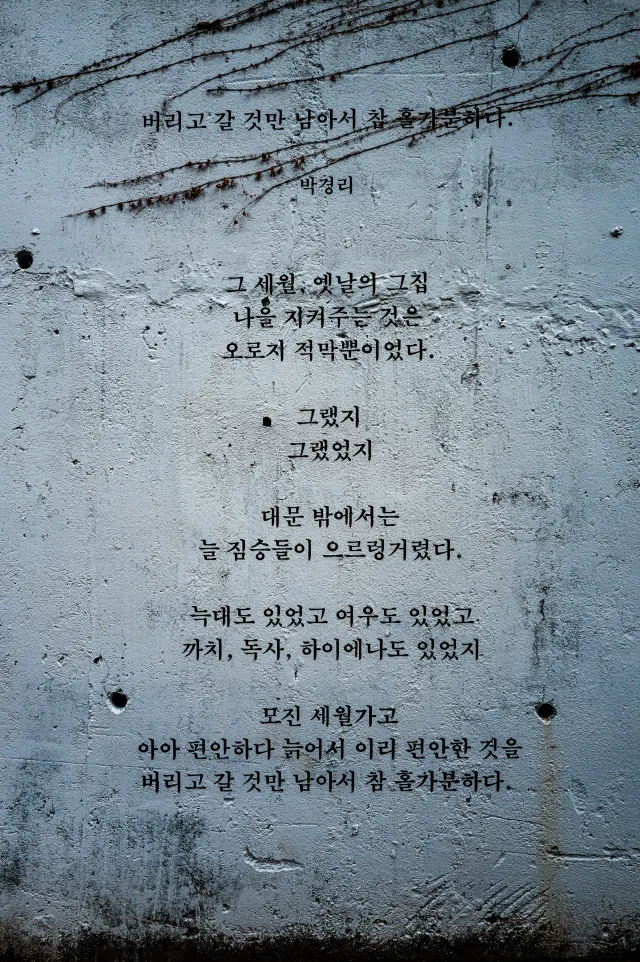 버리고 갈 것만 남아서 참 홀가분하다.
박경리
그 세월, 옛날의 그집
나을 지켜주는 것은
오로지 적막뿐이었다.
그랬지
그랬었지
대문 밖에서는
늘 짐승들이 으르렁거렸다.
늑대도 있었고 여우도 있었고
까치, 독사, 하이에나도 있었지
모진 세월가고
아아 편안하다 늙어서 이리 편안한 것을
버리고 갈 것만 남아서 참 홀가분하다.